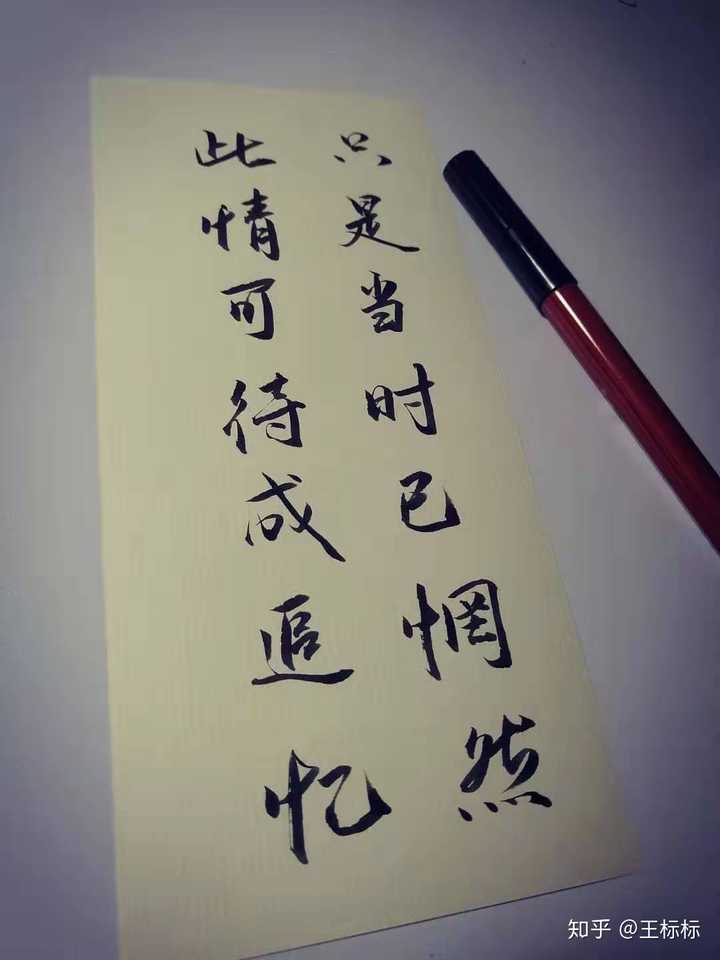 此情可待成追忆
只是当时已惘然
知乎 @王标标